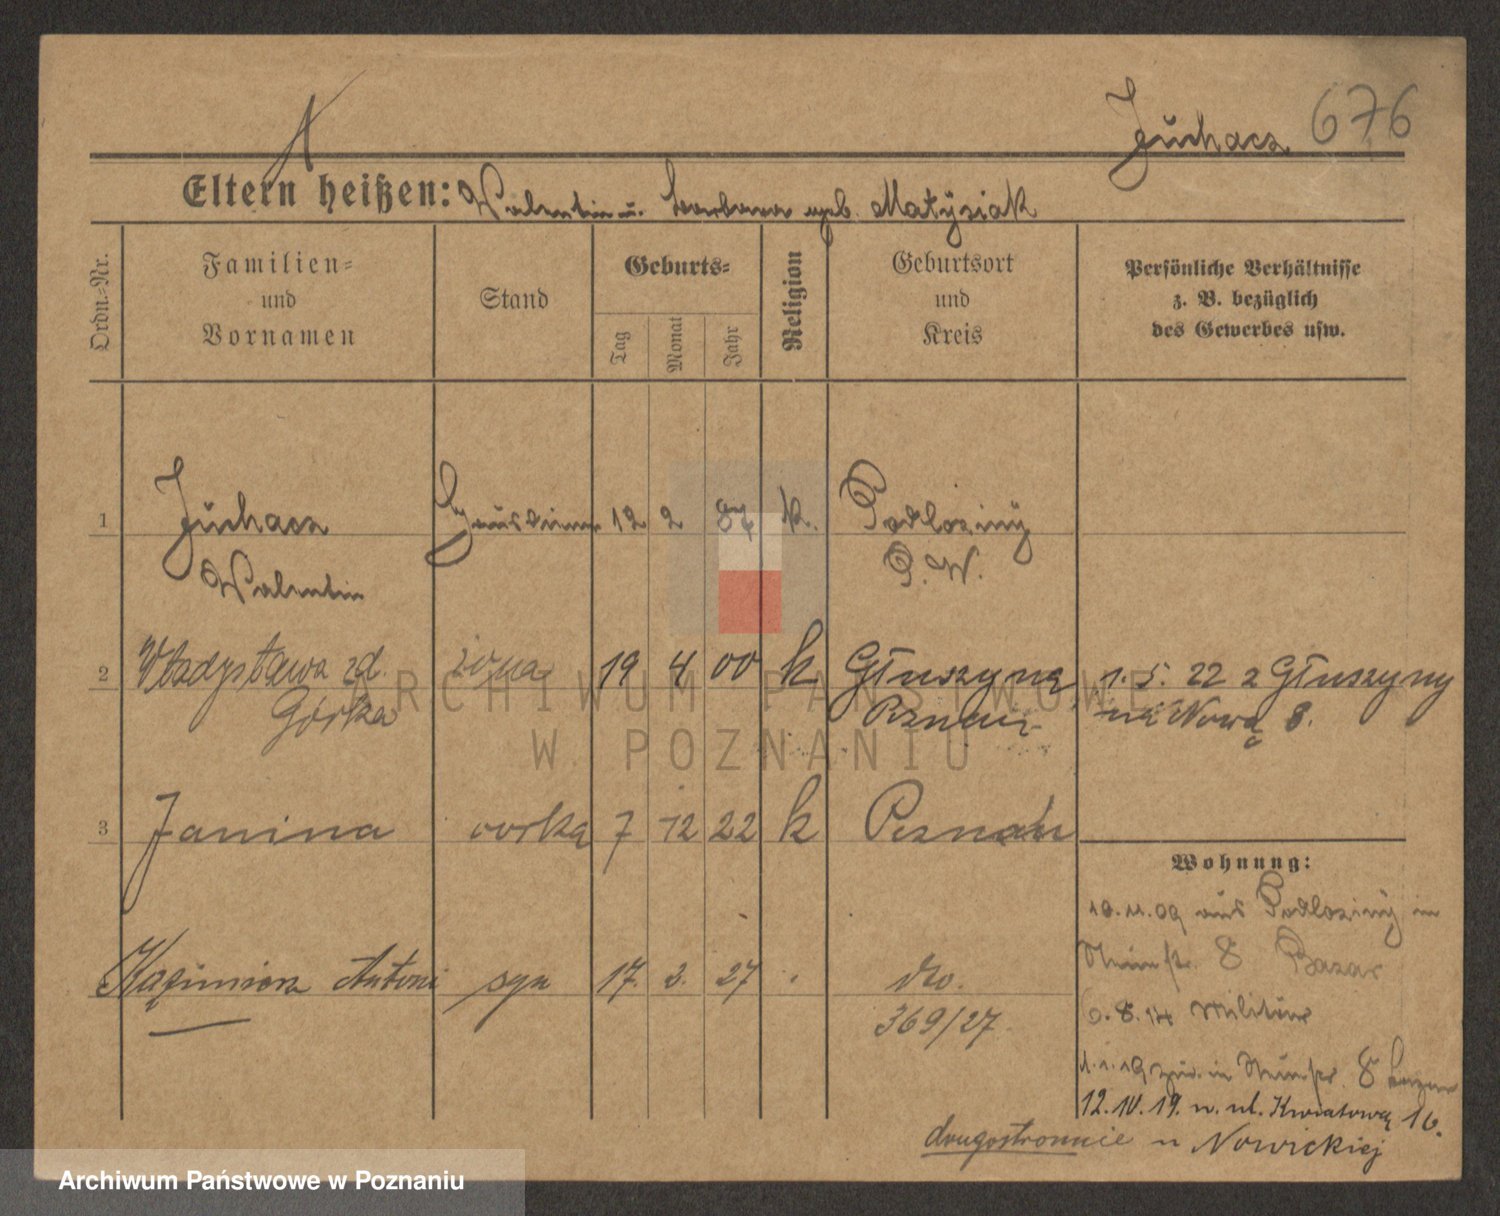 Juhacz 676
Eltern heißen: Walentin u. Barbara geb. Matysiak
Ordn.=Nr.
Familien=
und
Vornamen
Stand
Geburts=
Tag
Monat
Jahr
Religion
Geburtsort
und
Kreis
Persönliche Verhältnisse
z. B. bezüglich
des Gewerbes usw.
1 Juhacz Hausdiener 12 2 87 k. Podloziny
Walentin P. W.
2 Władysława zd. żona 19 4 00 k Głuszyna 1. 5. 22 z Głuszyny
Górka Poznań na Nową 8.
3 Janina córka 7 12 22 k Poznań
Wohnung:
10.11.09 aus Podloziny in
8 Bazar
Kazimierz Antoni syn 17. 3. 27 dto.
6.8.14 Militär
369/27
1.1.19 zur. in 8
12.IV.19. n. ul. Kwiatową 16.
drugostronnie u Nowickiej
ARCHIWUM PAŃSTWOWE
W POZNANIU
Archiwum Państwowe w Poznaniu